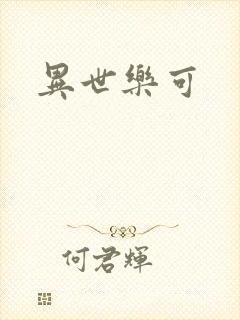 異世樂可
何君輝